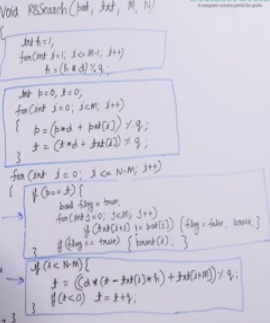 Void RBSearch (pat, txt, M, N)
A computer science portal for geeks
{
int h=1;
for(int i=1; i<=M-1; i++)
h=(h*d)%q;
int p=0, t=0;
for(int i=0; i<M; i++)
{ p=(p*d + pat[i])%q;
t=(t*d + txt[i])%q;
}
for (int i=0; i<=N-M; i++)
{ if (p==t) {
bool flag = true;
for(int j=0; j<M; j++)
if (txt[i+j] != pat[j]) {flag=false; break;}
if (flag == true) {print(i); }
}
if (i<N-M) {
t = ((d*(t-txt[i]*h)+txt[i+M])%q;
if(t<0) t=t+q;
}
}